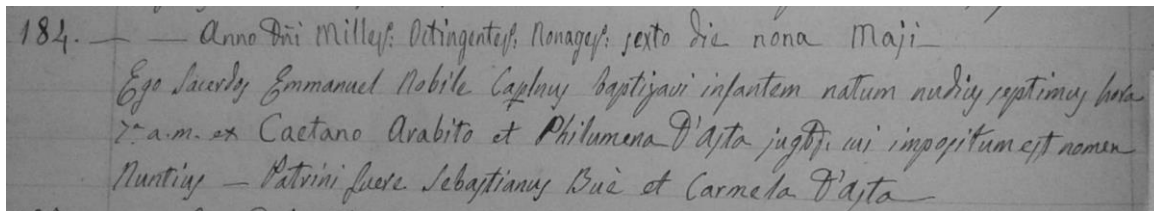 184. — — Anno Dñi Milleſ: Octingenteſ: Nonageſ: ſexto die nona Maji —
Ego Sacerdoſ Emmanuel Nobile Caplnuſ baptizavi infantem natum nudiuſ ſeptimuſ hora
7ª a.m. ex Caetano Arabito et Philumena D'Aſta jugbſ. cui impoſitum eſt nomen
Nuntiuſ — Patrini fuere Sebaſtianuſ Buè et Carmela D'Aſta —